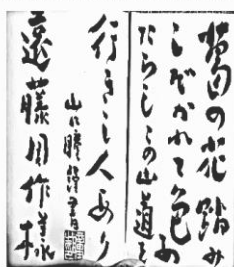 葛の花踏み
しだかれて色あ
たらしこの山道を
行きし人あり
山口
遠藤周作様